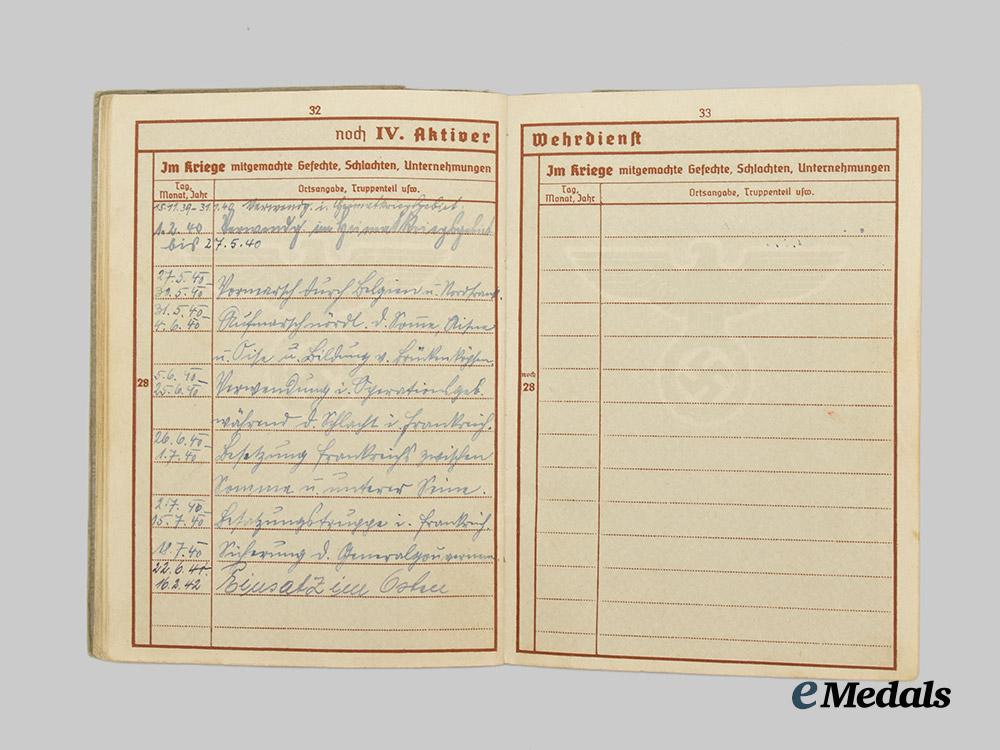 32
noch IV. Aktiver
Im Kriege mitgemachte Gefechte, Schlachten, Unternehmungen
Tag, Monat, Jahr
Ortsangabe, Truppenteil usw.
15.11.39-31.1.40 Verwendg. i. Heimatkriegsgebiet
1.2.40 Verwendg im Heimatkriegsgebiet
bis 27.5.40
27.5.40-
31.5.40 Vormarsch durch Belgien u. Nordfrank.
31.5.40-
4.6.40 Aufmarsch nördl. d. Somme, Aisne
u. Oise u. Bildung v. Brückenköpfen.
28
5.6.40-
25.6.40 Verwendung i. Operationsgeb.
während d. Schlacht i. Frankreich.
26.6.40-
1.7.40 Besetzung Frankreichs zwischen
Somme u. unterer Seine.
2.7.40-
15.7.40 Besatzungstruppe i. Frankreich.
18.7.40 Sicherung d. Generalgouvernem
22.6.41-
16.2.42 Einsatz im Osten
33
Wehrdienst
Im Kriege mitgemachte Gefechte, Schlachten, Unternehmungen
Tag, Monat, Jahr
Ortsangabe, Truppenteil usw.
noch
28
eMedals